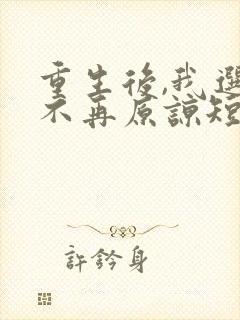 重生後,我選
不再原諒短
許衿身